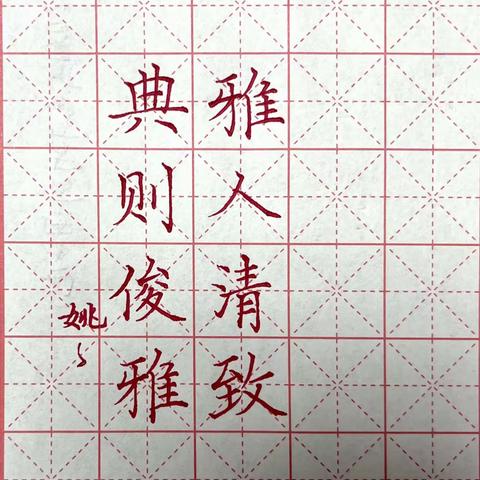 雅人清致
典则俊雅
姚〻